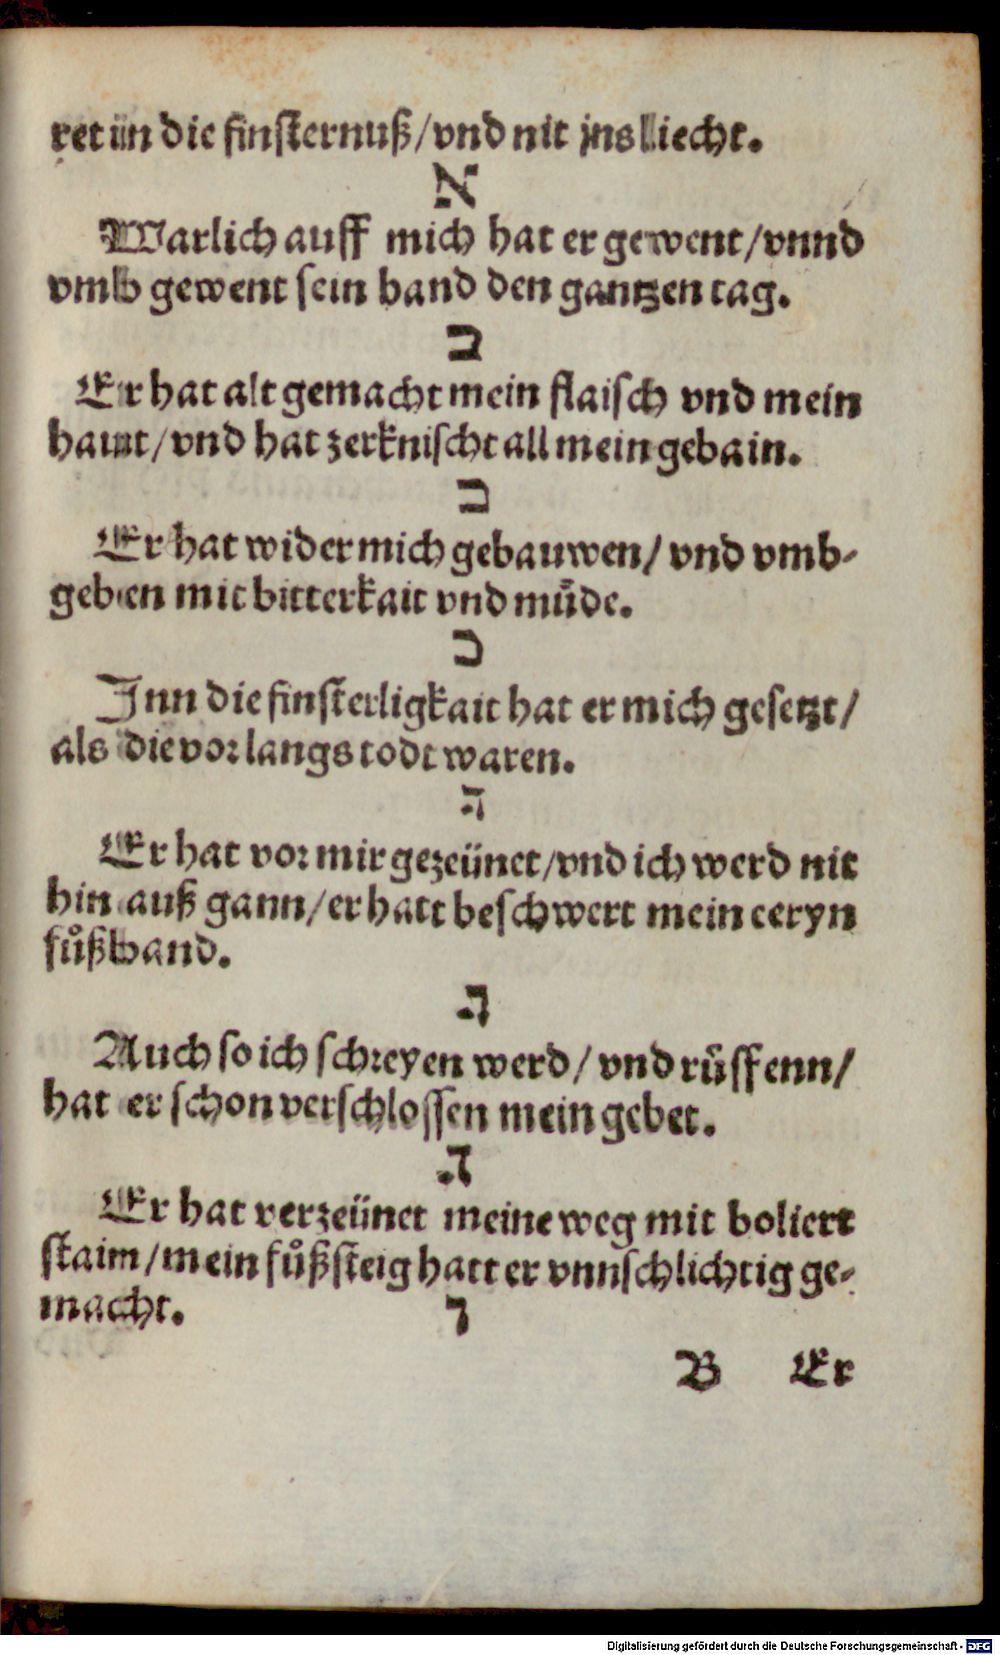 ret in die finsternuß/vnd nit ins liecht.
א
Warlich auff mich hat er gewent/vnnd
vmb gewent sein hand den gantzen tag.
ב
Er hat alt gemacht mein flaisch vnd mein
haut/vnd hat zerknischt all mein gebain.
ב
Er hat wider mich gebauwen/vnd vmb-
geben mit bitterkait vnd muͤde.
ב
Inn die finsterligkait hat er mich gesetzt/
als die vor langs todt waren.
ג
Er hat vor mir gezeünet/vnd ich werd nit
hin auß gann/er hatt beschwert mein eeryn
fuͦßband.
ג
Auch so ich schreyen werd/vnd ruͤffenn/
hat er schon verschlossen mein gebet.
ג
Er hat verzeünet meine weg mit boliert
stain/mein fuͦßsteig hatt er vnnschlichtig ge-
macht. ד
B Er
Digitalisierung gefördert durch die Deutsche Forschungsgemeinschaft - DFG